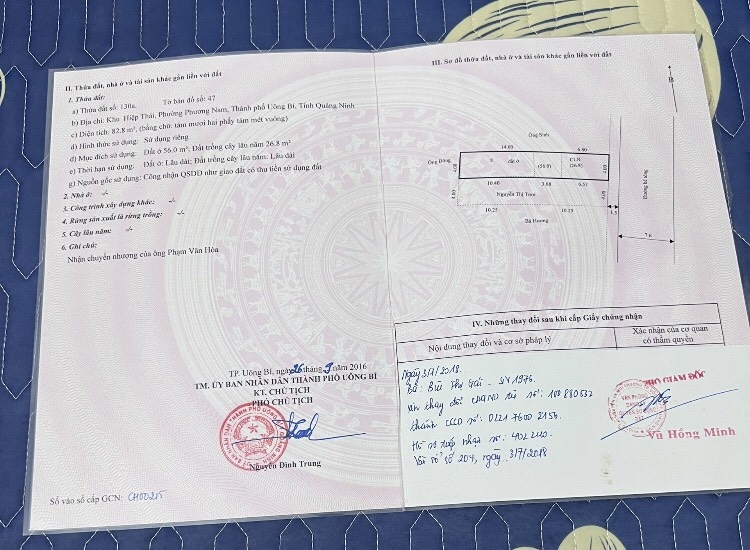 II. Thửa đất, nhà ở và tài sản khác gắn liền với đất
1. Thửa đất:
a) Thửa đất số: 130a, Tờ bản đồ số: 47
b) Địa chỉ: Khu Hiệp Thái, Phường Phương Nam, Thành phố Uông Bí, Tỉnh Quảng Ninh
c) Diện tích: 82.8 m², (bằng chữ: tám mươi hai phẩy tám mét vuông)
d) Hình thức sử dụng: Sử dụng riêng
đ) Mục đích sử dụng: Đất ở 56.0 m²; Đất trồng cây lâu năm 26.8 m²
e) Thời hạn sử dụng: Đất ở: Lâu dài; Đất trồng cây lâu năm: Lâu dài
g) Nguồn gốc sử dụng: Công nhận QSDĐ như giao đất có thu tiền sử dụng đất
2. Nhà ở: -/-
3. Công trình xây dựng khác: -/-
4. Rừng sản xuất là rừng trồng: -/-
5. Cây lâu năm: -/-
6. Ghi chú:
Nhận chuyển nhượng của ông Phạm Văn Hòa
TP. Uông Bí, ngày 26 tháng 9 năm 2016
TM. ỦY BAN NHÂN DÂN THÀNH PHỐ UÔNG BÍ
KT. CHỦ TỊCH
PHÓ CHỦ TỊCH
Nguyễn Đình Trung
Số vào sổ cấp GCN: CH00215
III. Sơ đồ thửa đất, nhà ở và tài sản khác gắn liền với đất
B
Ông Ninh
14.00 6.00
Ông Đông
4.00 đất ở (56.0) CLN (26.8) 4.00
10.40 3.68 6.57
4.00 Nguyễn Thị Tươi 4.00
10.25 10.25
Bà Hương
1.5
7.6
Đường bê tông
IV. Những thay đổi sau khi cấp Giấy chứng nhận
Nội dung thay đổi và cơ sở pháp lý
Xác nhận của cơ quan có thẩm quyền
Ngày 3/7/2018.
Bà: Bùi Thị Gái - SN 1976.
thay đổi CMND từ số: 100880632
thành CCCD số:
Hồ sơ tiếp nhận số:
Vào sổ số 204, ngày 3/7/2018
PHÓ GIÁM ĐỐC
Vũ Hồng Minh